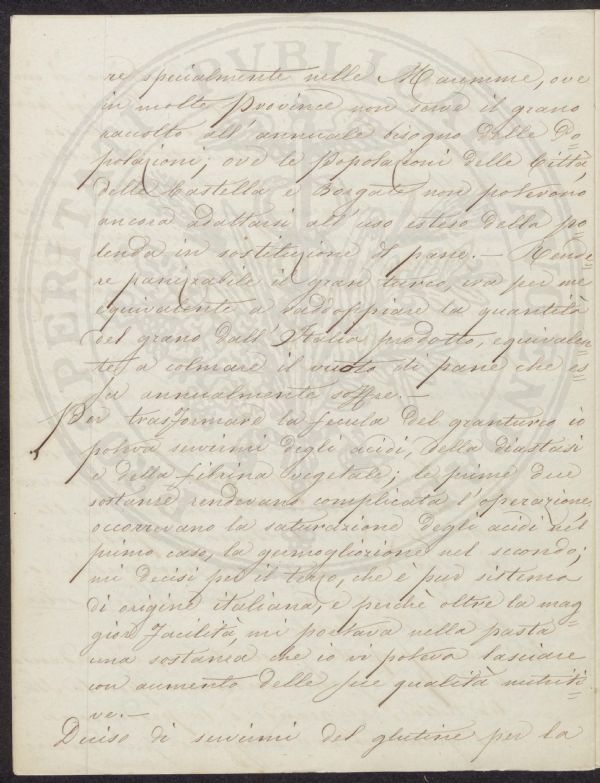 re specialmente nelle Maremme, ove
in molte Province non serve il grano
raccolto all'annuale bisogno delle Po=
polazioni; ove le Popolazioni delle Città,
delle Castella e Borgate non potevano
ancora adattarsi all'uso esteso della po=
lenda in sostituzione al pane. — Rende=
re panizzabile il gran turco, era per me
equivalente a raddoppiare la quantità
del grano dall'Italia prodotto, equivalen=
te a colmare il vuoto di pane che es=
sa annualmente soffre. —
Per trasformare la fecula del granturco io
poteva servirmi degli acidi, della diastasi
e della fibrina vegetale; le prime due
sostanze rendevano complicata l'operazione,
occorrevano la saturazione degli acidi nel
primo caso, la germogliazione nel secondo;
mi decisi per il terzo, che è pur sistema
di origine italiana, e perchè oltre la mag=
gior facilità, mi portava nella pasta
una sostanza che io vi poteva lasciare
con aumento delle sue qualità nutriti=
ve. —
Deciso di servirmi del glutine per la